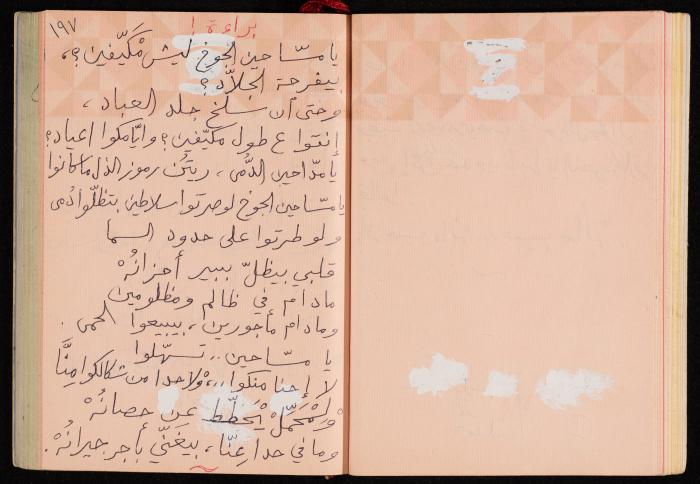 ١٩٧
براءة!
يا مسّاحين الجوخ ليش مْكَيّفين؟،
بيفرحة الجلاّد؟
وحتى آن سلخ جلد العباد،
إنتوا ع طول مكيّفين؟ وايّامكوا اعياد؟
يا مدّاحين الدُّمى، ريتكُن رموز الذل ما كانوا
يا مسّاحين الجوخ لو صرتوا سلاطين بتظلّوا دُمى
ولو طرتوا على حدود السما
قلبي بيظلّ ببير أحزانُهْ
مادام في ظالم ومظلومين
ومادام مأجورين، بيبيعوا الحمى.
يا مسّاحين.. تسهّلوا
لا إحنا منكوا..، ولا حدا من شكالكوا مِنَّا
ولمْحَمِّلْ يْحَطِّط عن حصانُهْ
وما في حدا عِنّا، بيغَنّي بأجر جيرانُهْ.